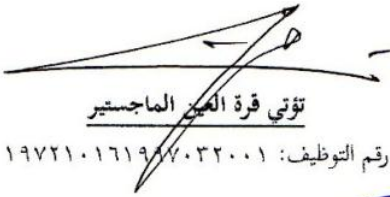 تؤتي قرة العين الماجستير
رقم التوظيف: ١٩٧٢١٠١٦١٩٩٧٠٣٢٠٠١